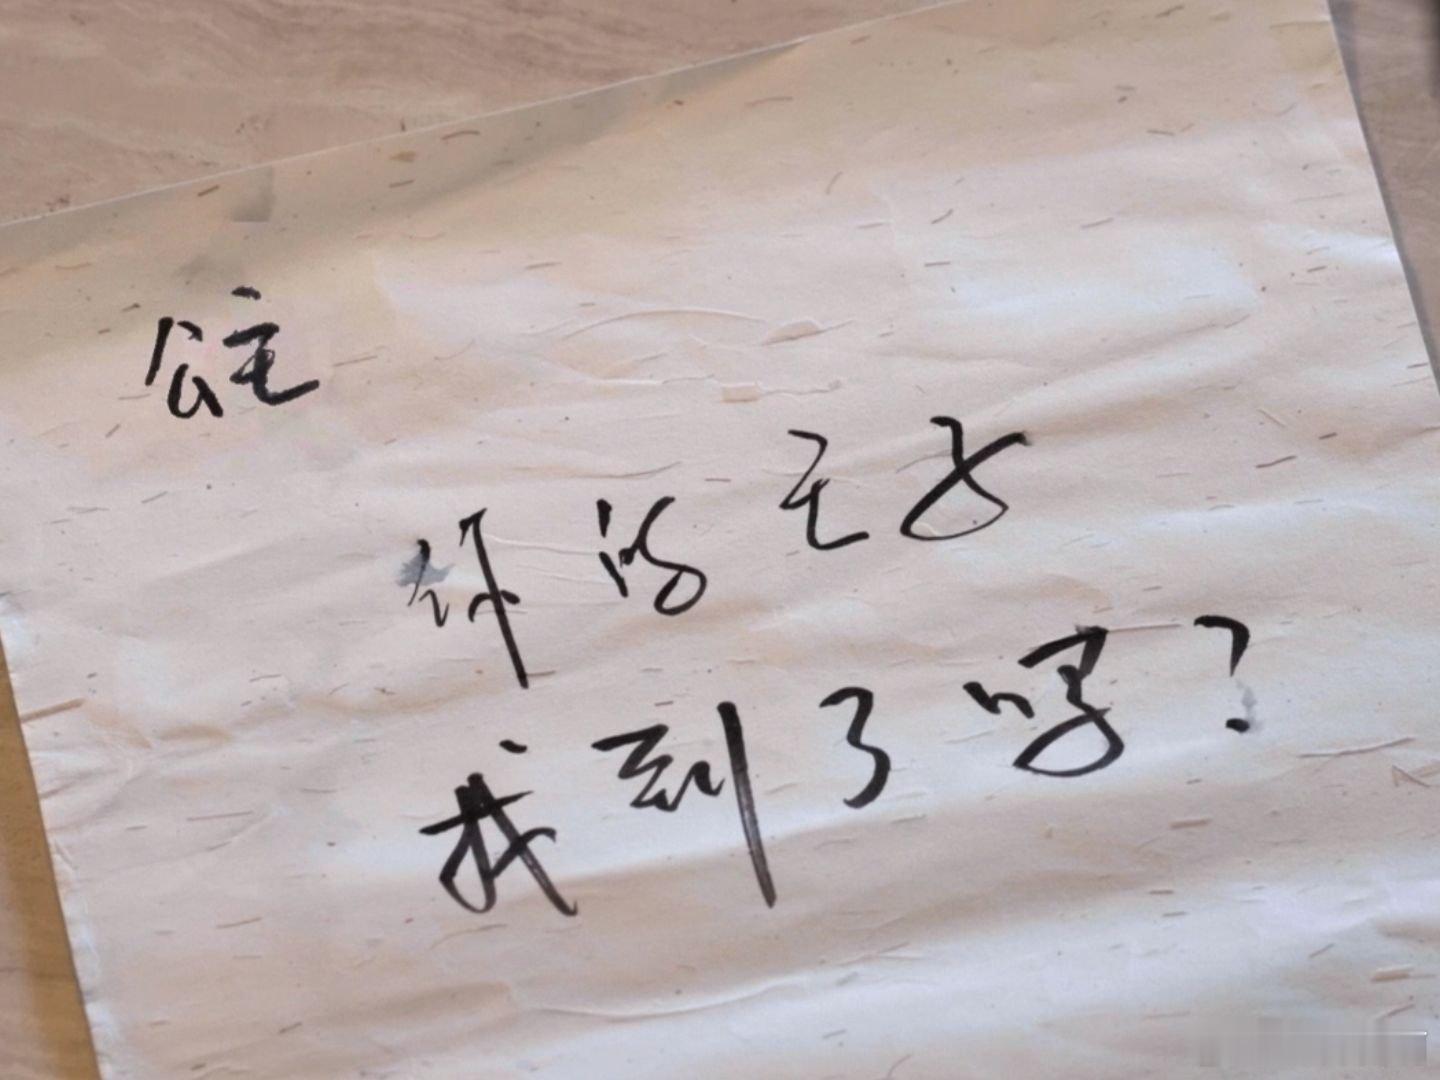 公主
你的王子
找到了吗?